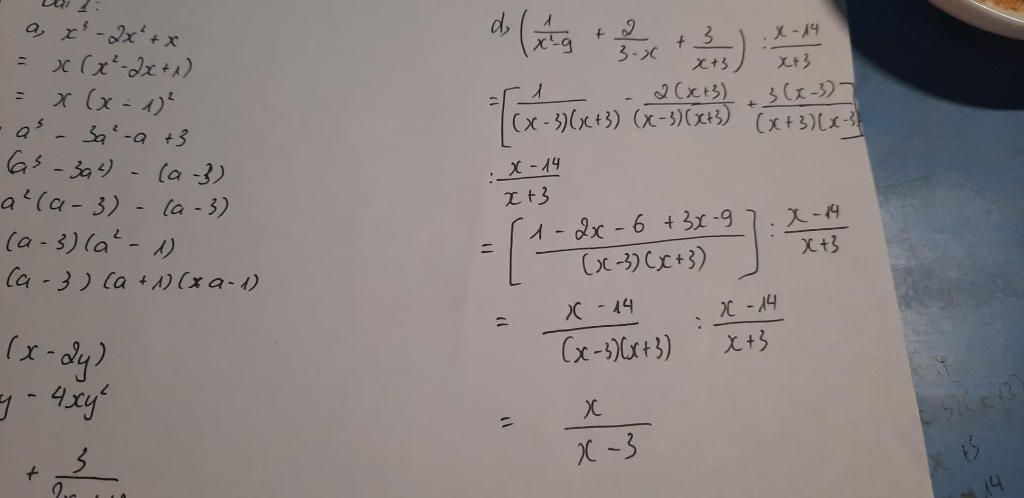 Bài 1:
a, x³ - 2x² + x
= x (x² - 2x + 1)
= x (x - 1)²
a³ - 3a² - a + 3
(a³ - 3a²) - (a - 3)
a² (a - 3) - (a - 3)
(a - 3) (a² - 1)
(a - 3) (a + 1) (x a - 1)
(x - 2y)
y - 4xy²
+ 3
d, (1/(x² - 9) + 2/(3 - x) + 3/(x + 3)) : (x - 14)/(x + 3)
= [1/((x - 3)(x + 3)) - 2(x + 3)/((x - 3)(x + 3)) + 3(x - 3)/((x + 3)(x - 3)]
: (x - 14)/(x + 3)
= [(1 - 2x - 6 + 3x - 9)/((x - 3)(x + 3))] : (x - 14)/(x + 3)
= (x - 14)/((x - 3)(x + 3)) : (x - 14)/(x + 3)
= x/(x - 3)